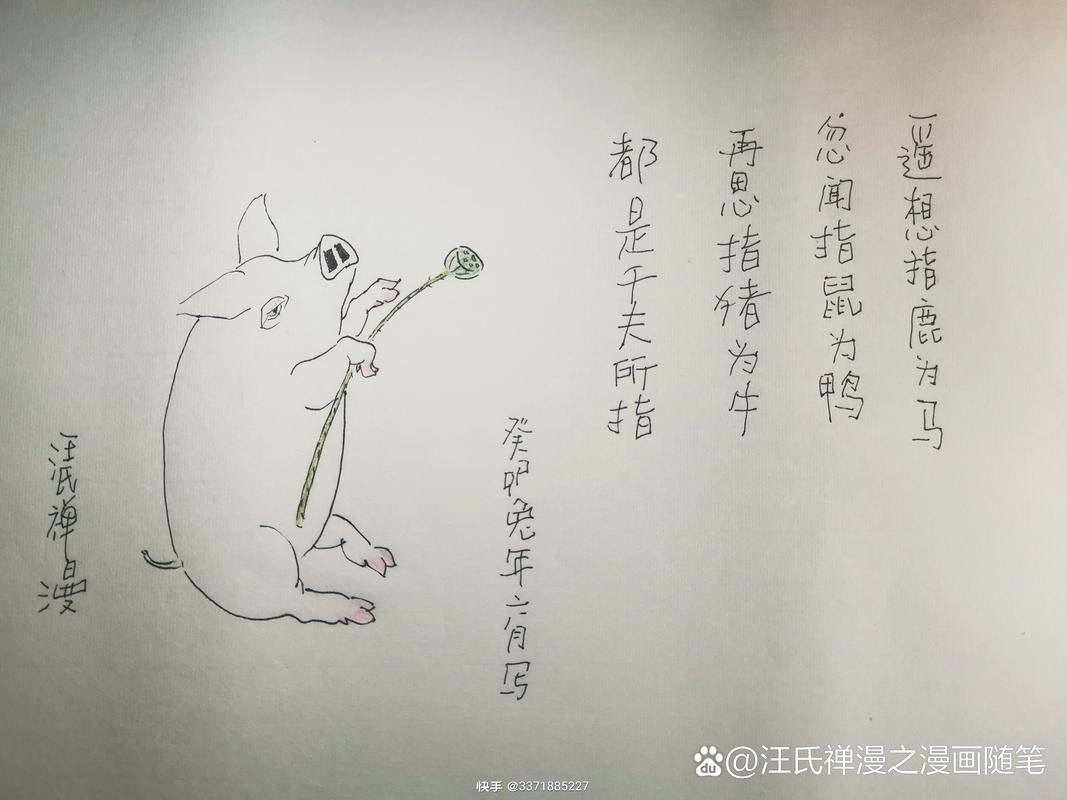 遥想指鹿为马
忽闻指鼠为鸭
再思指猪为牛
都是千夫所指
癸卯兔年六月写
汪氏禅漫
快手 @3371885227
du @汪氏禅漫之漫画随笔